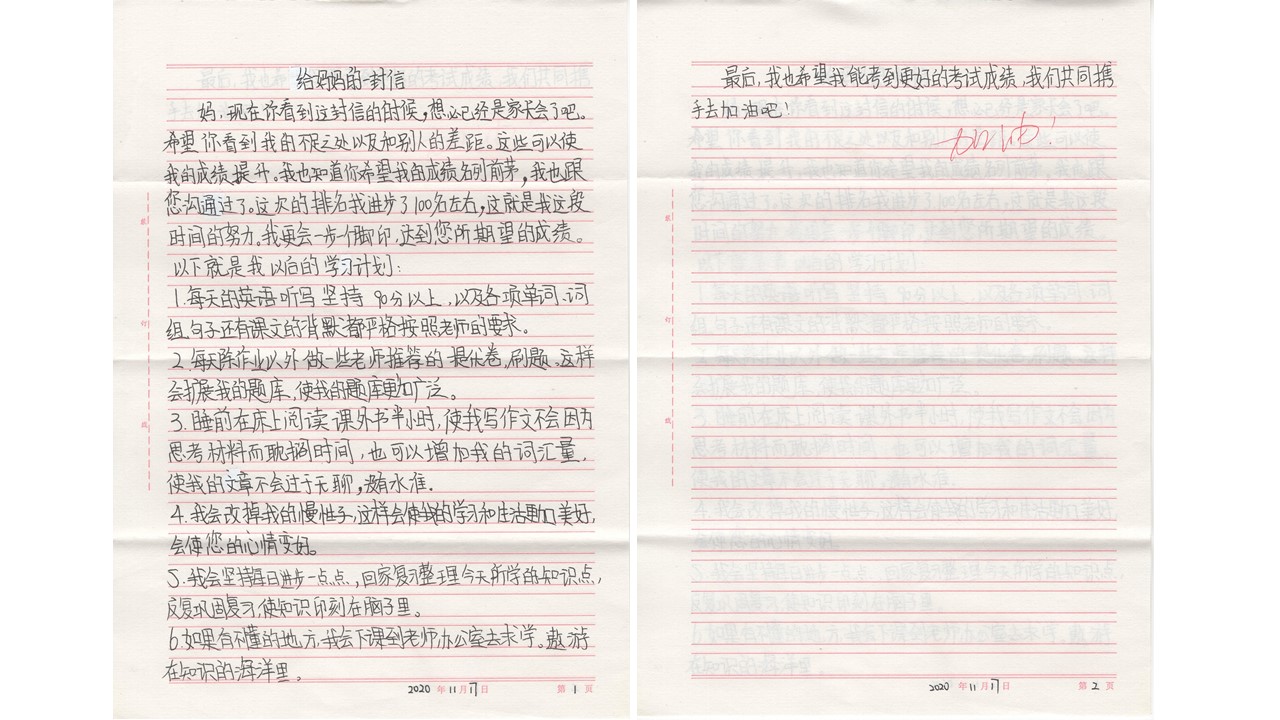 给妈妈的一封信
妈，现在你看到这封信的时候，想必已经是家长会了吧。
希望你看到我的不足之处以及和别人的差距。这些可以使
我的成绩提升。我也知道你希望我的成绩名列前茅，我也跟
您沟通过了。这次的排名我进步了100名左右，这就是我这段
时间的努力。我更会一步一个脚印，达到您所期望的成绩。
以下就是我以后的学习计划：
1.每天的英语听写坚持90分以上，以及各项单词、词
组、句子还有课文的背默都严格按照老师的要求。
2.每天除作业以外做一些老师推荐的提优卷，刷题、这样
会扩展我的题库，使我的题库更加广泛。
3.睡前在床上阅读课外书半小时，使我写作文不会因为
思考材料而耽搁时间，也可以增加我的词汇量，
使我的文章不会过于无聊，有水准．
4.我会改掉我的慢性子，这样会使我的学习和生活更加美好，
会使您的心情变好。
5.我会坚持每日进步一点点，回家复习整理今天所学的知识点，
反复巩固复习使知识印刻在脑子里。
6.如果有不懂的地方，我会下课到老师办公室去求学。遨游
在知识的海洋里。
2020年11月17日 第1页
装
订
线
最后，我也希望我能考到更好的考试成绩，我们共同携
手去加油吧！
加油！
2020年11月17日 第2页
装
订
线